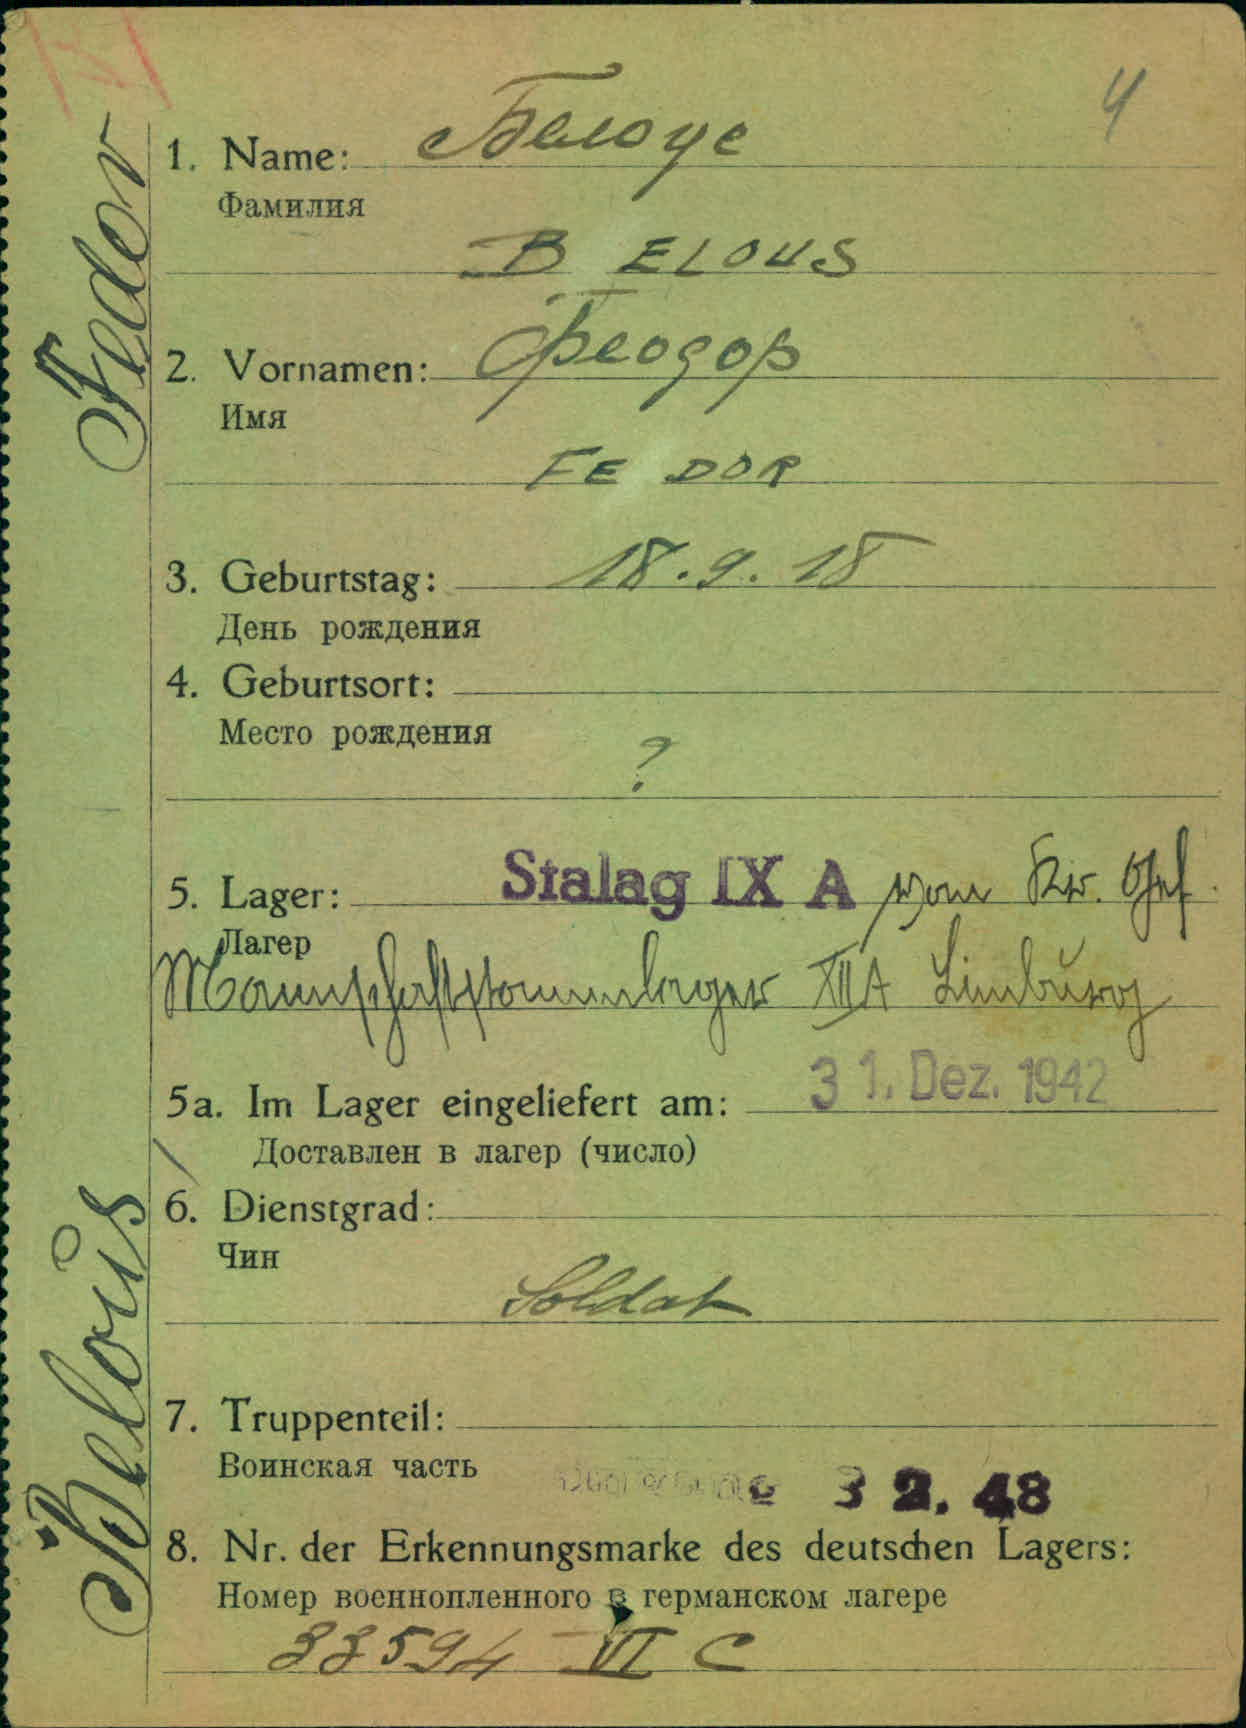 4
1. Name: Белоус
Фамилия
BELOUS
2. Vornamen: Феодор
Имя
FEDOR
3. Geburtstag: 18.9.18
День рождения
4. Geburtsort:
Место рождения
?
5. Lager: Stalag IX A vom Kr. Gef.
Лагер
Mannschaftsstammlager XII A Limburg
5a. Im Lager eingeliefert am: 31. Dez. 1942
Доставлен в лагер (число)
6. Dienstgrad:
Чин
Soldat
7. Truppenteil:
Воинская часть
3 2. 48
8. Nr. der Erkennungsmarke des deutschen Lagers:
Номер военнопленного в германском лагере
33594 VI C
Belous Fedor